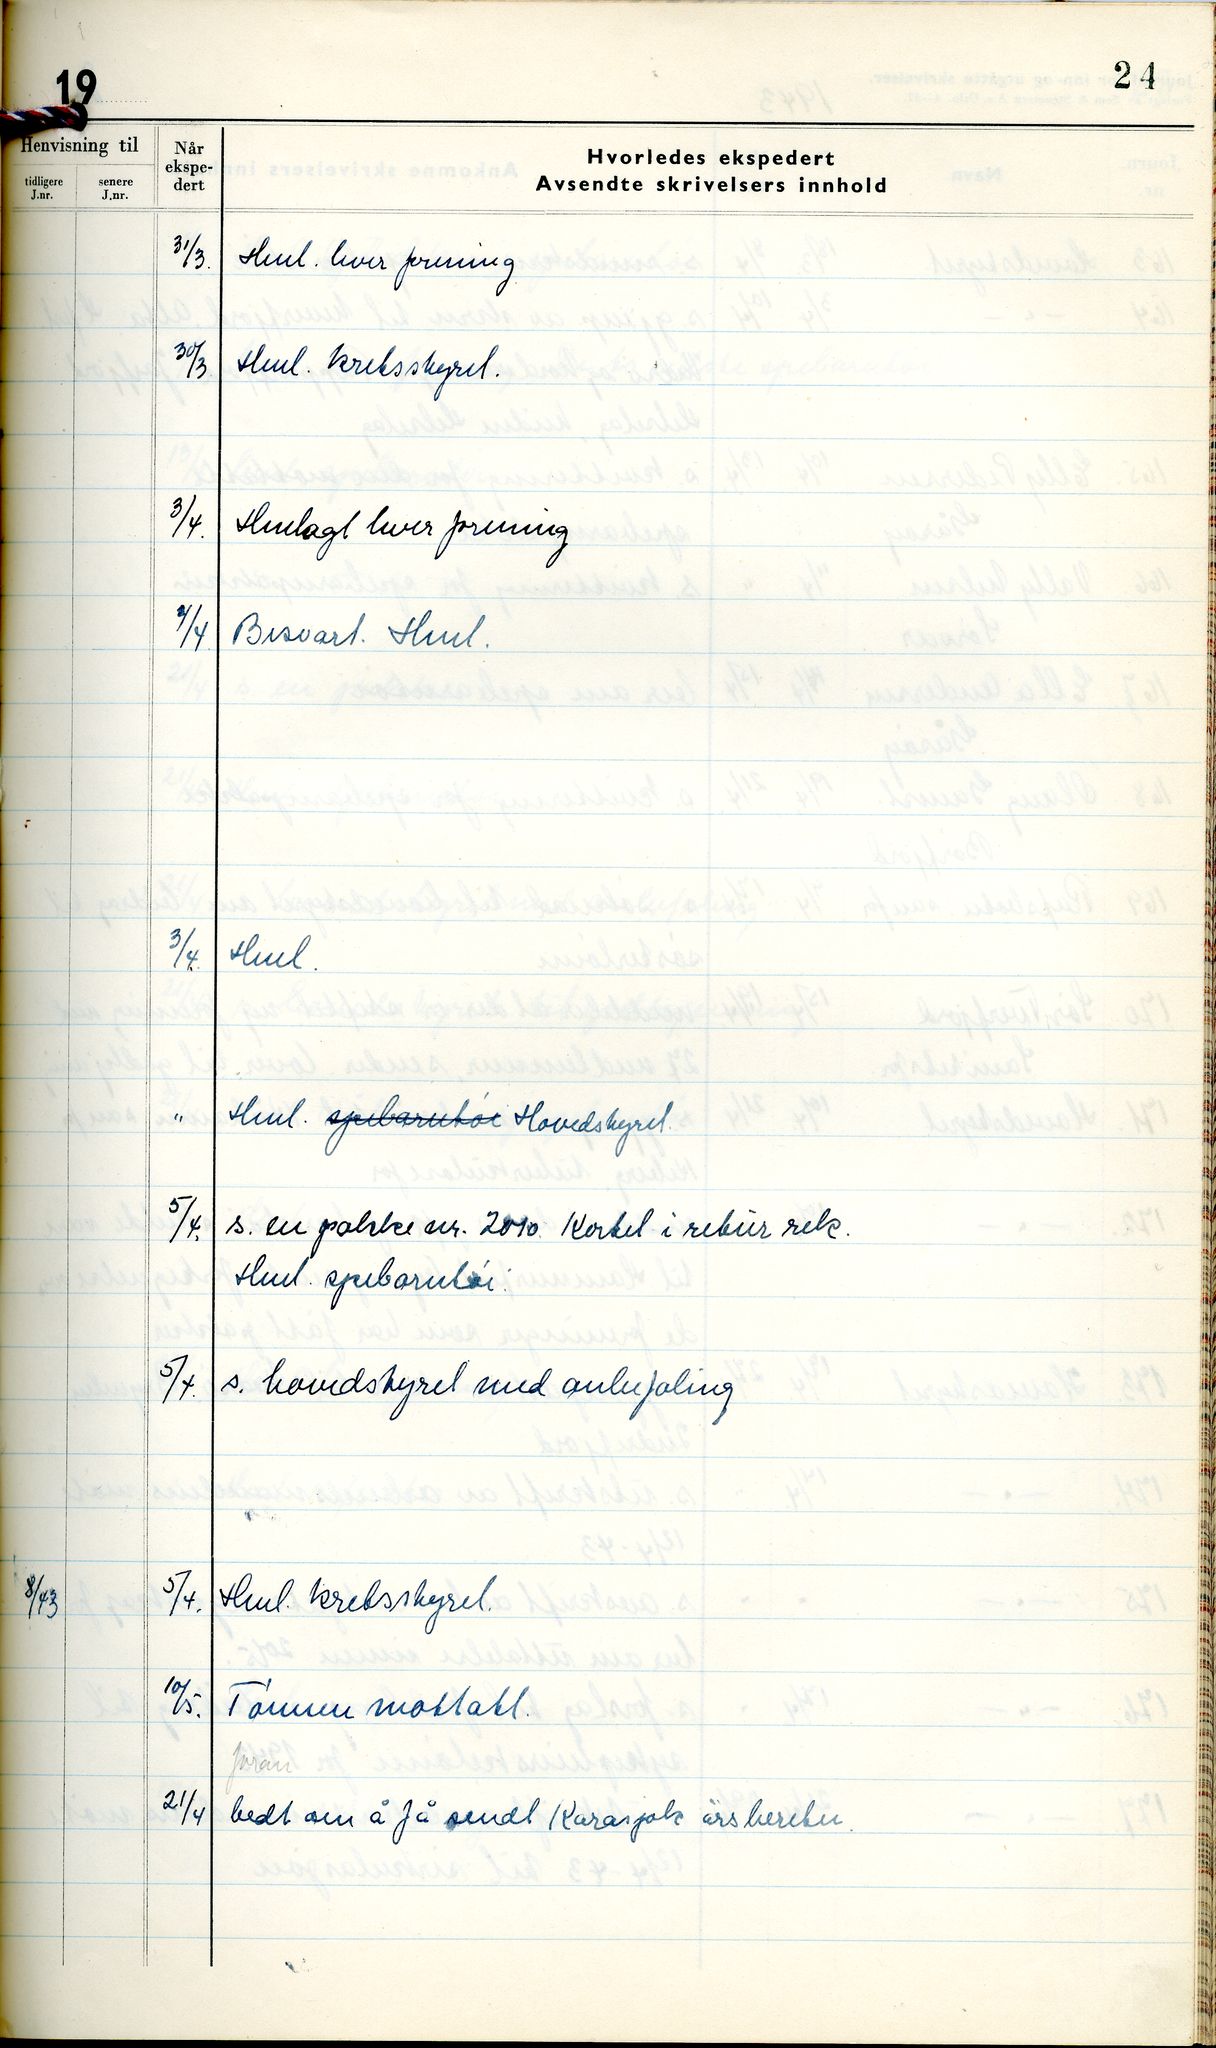 19
24
Henvisning til
tidligere J.nr.
senere J.nr.
Når ekspe- dert
Hvorledes ekspedert
Avsendte skrivelsers innhold
31/3. Henl. hver forening
30/3 Henl. Kretsstyret.
3/4. Henlagt hver forening
4/4 Besvart. Henl.
3/4. Henl.
" Henl. spebarntöi Hovedstyret.
5/4. s. en pakke nr. 2010 Kortet i retur rek.
Henl. spebarntöi.
5/4. s. hovedstyret med anbefaling
8/43 5/4. Henl. Kretsstyret.
10/5. Tönnen mottatt.
foran
21/4 bedt om å få sendt Karasjok årsberetn.